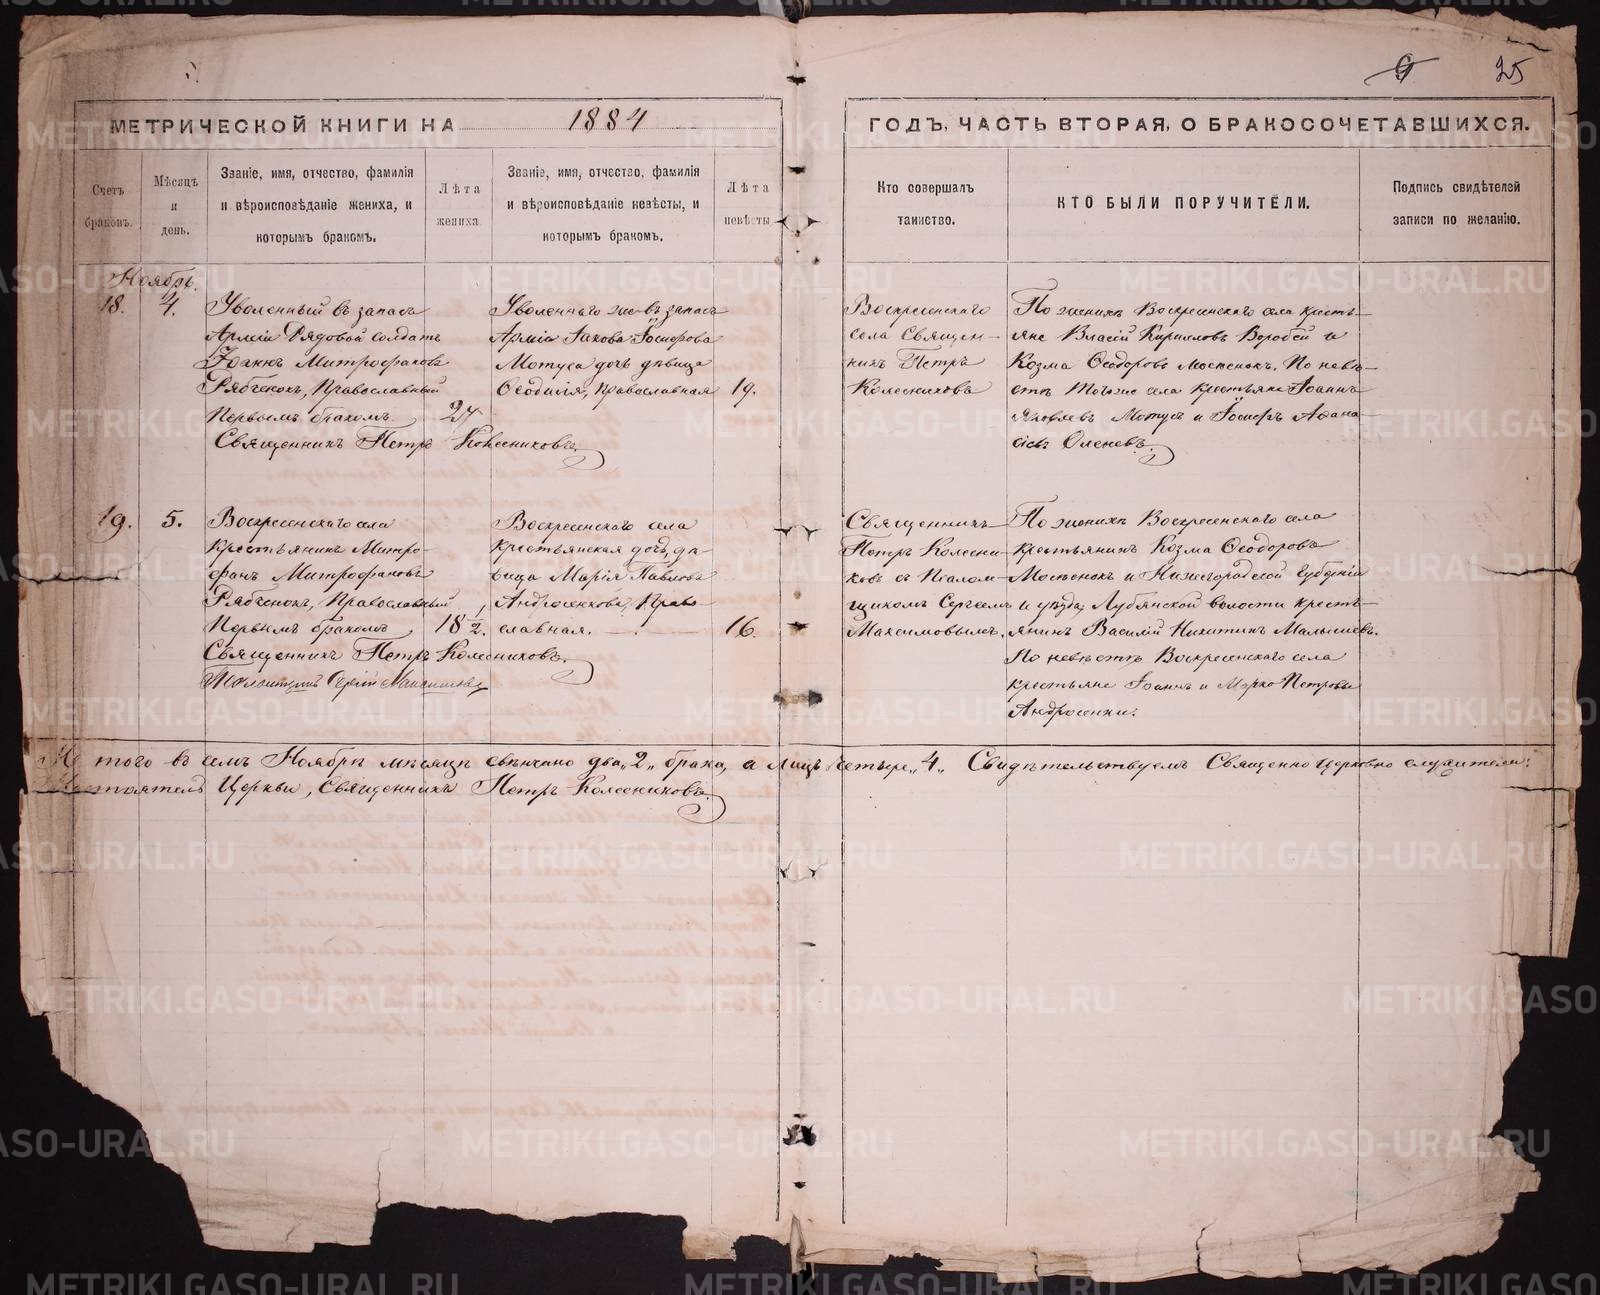 25
МЕТРИЧЕСКОЙ КНИГИ НА 1884
ГОДЪ, ЧАСТЬ ВТОРАЯ, О БРАКОСОЧЕТАВШИХСЯ.
Счетъ браковъ.
Мѣсяцъ и день.
Званіе, имя, отчество, фамилія
и вѣроисповѣданіе жениха, и
которымъ бракомъ.
Лѣта жениха
Званіе, имя, отчество, фамилія
и вѣроисповѣданіе невѣсты, и
которымъ бракомъ.
Лѣта невѣсты
Кто совершалъ
таинство.
КТО БЫЛИ ПОРУЧИТЕЛИ.
Подпись свидѣтелей
записи по желанію.
Ноябрь.
18. 4.
Уволенный въ запасъ
Арміи Рядовой солдатъ
Іоаннъ Митрофановъ
Рябченокъ, Православный
Первымъ бракомъ
Священникъ Петръ Колесниковъ.
Уволеннаго же въ запасъ
Арміи Іакова Іосифова
Мотуса дочь дѣвица
Ѳеодилія, православная 19.
Воскресенскаго
села Священ-
никъ Петръ
Колесниковъ
По женихѣ Воскресенскаго села кресть-
яне Власій Кирилловъ Воробей и
Козма Ѳеодоровъ Мостенокъ. По невѣ-
стѣ того же села крестьяне Іоаннъ
Яковлевъ Мотусъ и Іосифъ Аѳана-
сіевъ Оленевъ.
19. 5.
Воскресенскаго села
крестьянинъ Митро-
фанъ Митрофановъ
Рябченокъ, Православный
Первымъ бракомъ 18 1/2.
Священникъ Петръ Колесниковъ.
Псаломщикъ Сергій Максимовъ
Воскресенскаго села
крестьянская дочь, дѣ-
вица Марія Павлова
Андросенкова, Право-
славная. 16.
Священникъ
Петръ Колесни-
ковъ съ Псалом-
щикомъ Сергіемъ
Максимовымъ.
По женихѣ Воскресенскаго села
крестьянинъ Козма Ѳеодоровъ
Мостенокъ и Нижегородской губерніи
и уѣзда, Лубянской волости кресть-
янинъ Василій Никитинъ Малышевъ.
По невѣстѣ Воскресенскаго села
крестьяне Іоаннъ и Марко Петровы
Андросенки.
Итого въ семъ Ноябрѣ мѣсяцѣ свѣнчано два „2„ брака, а лицъ четыре „4„ Свидѣтельствуемъ Священно церковно служители:
Настоятель Церкви, Священникъ Петръ Колесниковъ.
METRIKI.GASO-URAL.RU